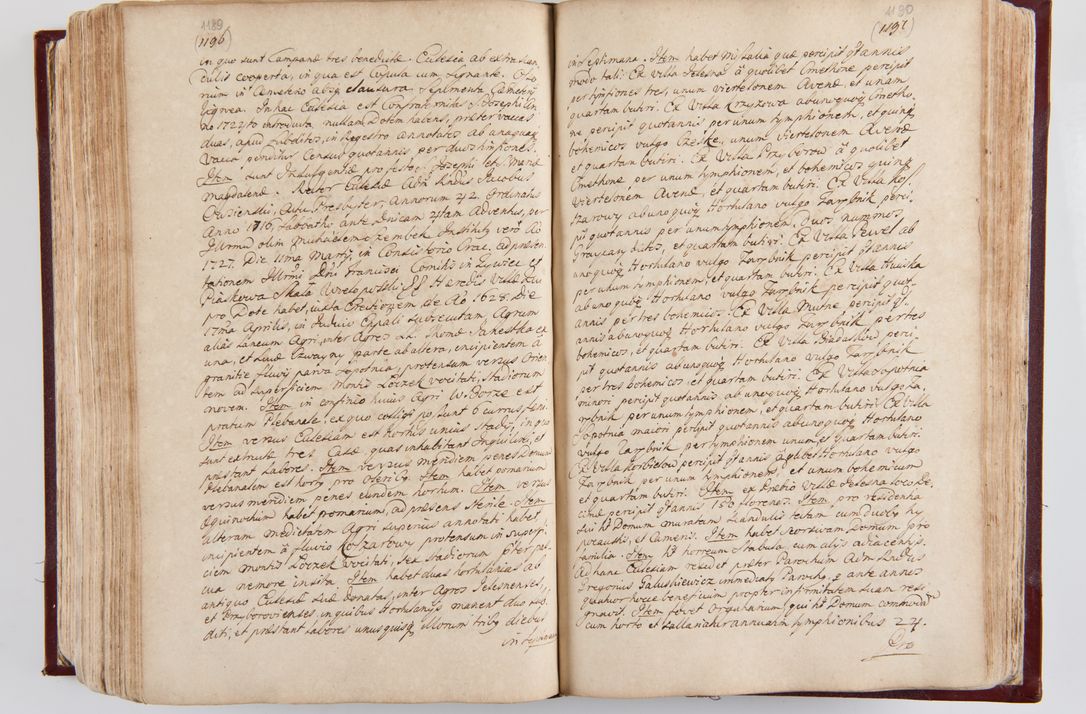 1189
(1196)
in quo sunt Campanæ tres benedictæ. Ecclesia ab extra scan
dulis cooperta, in qua est Copula cum Signante. Osso
rium à Cæmeterio absq clausura. Septimenta Cæmeterii
lignea. In hac Ecclesia est Confraternitas S. Josephi An
no 1722do introducta nullam Dotem habens, præter vaccas
duas, apud Subditos, in Regestro annotatos ab unaquaq
Vacca penditur Census quotannis per duos florenos.
Item sunt Indulgentiæ pro festo S. Josephi et S. Mariæ
Magdalenæ. Rector Ecclesiæ Adm Rndus Jacobus
Presbyter, Annorum 42. Ordinatus
Anno 1710. Sabbatho ante Dnicam 4tam Adventus, per
Illrmum olim Michaëlem Szembek Institutus verò Ao
1727. Die 11ma Martij in Consistorio Crac. ad præsen
tationem Illrmi Dni Francisci Comitis in Zywiec et
Piaskowa Skała Wielopolski Hæredis Villæ
pro Dote habet, iuxta Erectionem de Ao 1628. Die
17ma Aprilis, in Curia Eppali subsecutam, Agrum
aliàs Laneum Agri, inter Agros La. Thomæ Janestka ex
una, et Lucæ Czwayny parte ab altera, incipientem à
granitie fluvij parva Sopotnia, protensum versus Orien
tem ad superficiem Montis Loczek vocitati, Stadiorum
novem. Item in confinio huius Agri W. Gorze est
pratum Plebanale, ex quo colligi possunt 6 currus fæni.
Item versus Ecclesiam est hortus unius Stadij, in quo
sunt extructæ tres Casæ, quas inhabitant Inquilini, et
præstant labores. Item versus meridiem penes Domum
Plebanalem est hortus pro Oleribus. Item habet pomarium
versus meridiem penes eundem hortum. Item versus
Æquinoctium habet pomarium, ad præsens Sterile. Item
alteram medietatem Agri superius annotati habet
incipientem à fluvio Koszarowy protensum in superfi
ciem montis Loczek vocitati, sex stadiorum præter pas
cua nemore insita. Item habet duas hortulanias ab
antiquo Ecclesiæ suæ donatas, inter Agros Jelesnenses,
et Przyborovienses, in quibus Hortulanijs manent duo sub
diti, et præstant labores unusquisq illorum tribus diebus
in septimana

1190
(1197)
in Septimana. Item habet Missalia quæ percipit qtannis
modo tali: Ex Villa Jelesna à quolibet Cmethone percipit
per grossos tres, unum viertelonem Avenæ, et unam
quartam butiri. Ex Villa Krzyzowa ab unoquoq Cmetho
ne percipit quotannis per unum tymphionem, et quinq
bohemicos vulgo Ceskie, unum viertelonem Avenæ
et quartam butiri. Ex Villa Przyborow à quolibet
Cmethone per unum tymphionem, et bohemicos quinq
viertelonem Avenæ, et quartam butiri. Ex Villa Kos
szarowy ab unoquoq Hortulano vulgo Zarębnik perci
pit quotannis per unum tymphionem, Duos nummos
Grayczary dictos, et quartam butiri. Ex Villa Pewel ab
unoquoq Hortulano vulgo Zarębnik percipit qtannis
per unum tymphionem, et quartam butiri. Ex Villa Huciska
ab unoquoq Hortulano vulgo Zarębnik percipit quot
annis per tres bohemicos. Ex Villa Mutne percipit qt
annis ab unoquoq Hortulano vulgo Zarębnik per tres
bohemicos, et quartam butiri. Ex Villa Bzadaskow perci
pit quotannis ab unoquoq Hortulano vulgo Zarębnik
per tres bohemicos, et quartam butiri. Ex Villa Sopotnia
minori percipit quotannis ab unoquoq Hortulano vulgo Za
rębnik per unum tymphionem, et quartam butiri. Ex Villa
Sopotnia maiori percipit quotannis ab unoquoq Hortulano
vulgo Zarębnik per tymphionem unum, et quartam butiri.
Ex Villa Korbielow percipit qtannis à qlibet Hortulano vulgo
Zarębnik per unum tymphionem, et unum bohemicum
et quartam butiri. Item ex Prædio Villæ Jelesna loco De
cimæ percipit qtannis 150 florenos. Item pro residentia
sui ht Domum muratam Scandulis tectam cum duobus hy
pocaustis, et Camenis. Item habet seorsivam Domum pro
familia. Item ht horreum Stabula cum alijs adiacentijs.
Ad hanc Ecclesiam residet præter Parochum Adm Rndus
Gregorius Galuskiewicz immediatus Parochus, q ante annos
quatuor hocce beneficium propter infirmitatem suam resi
gnavit. Item fovet Organarium, qui ht Domum commodam
cum horto et Sallariatur annuatim tymphionibus 24.
Pro